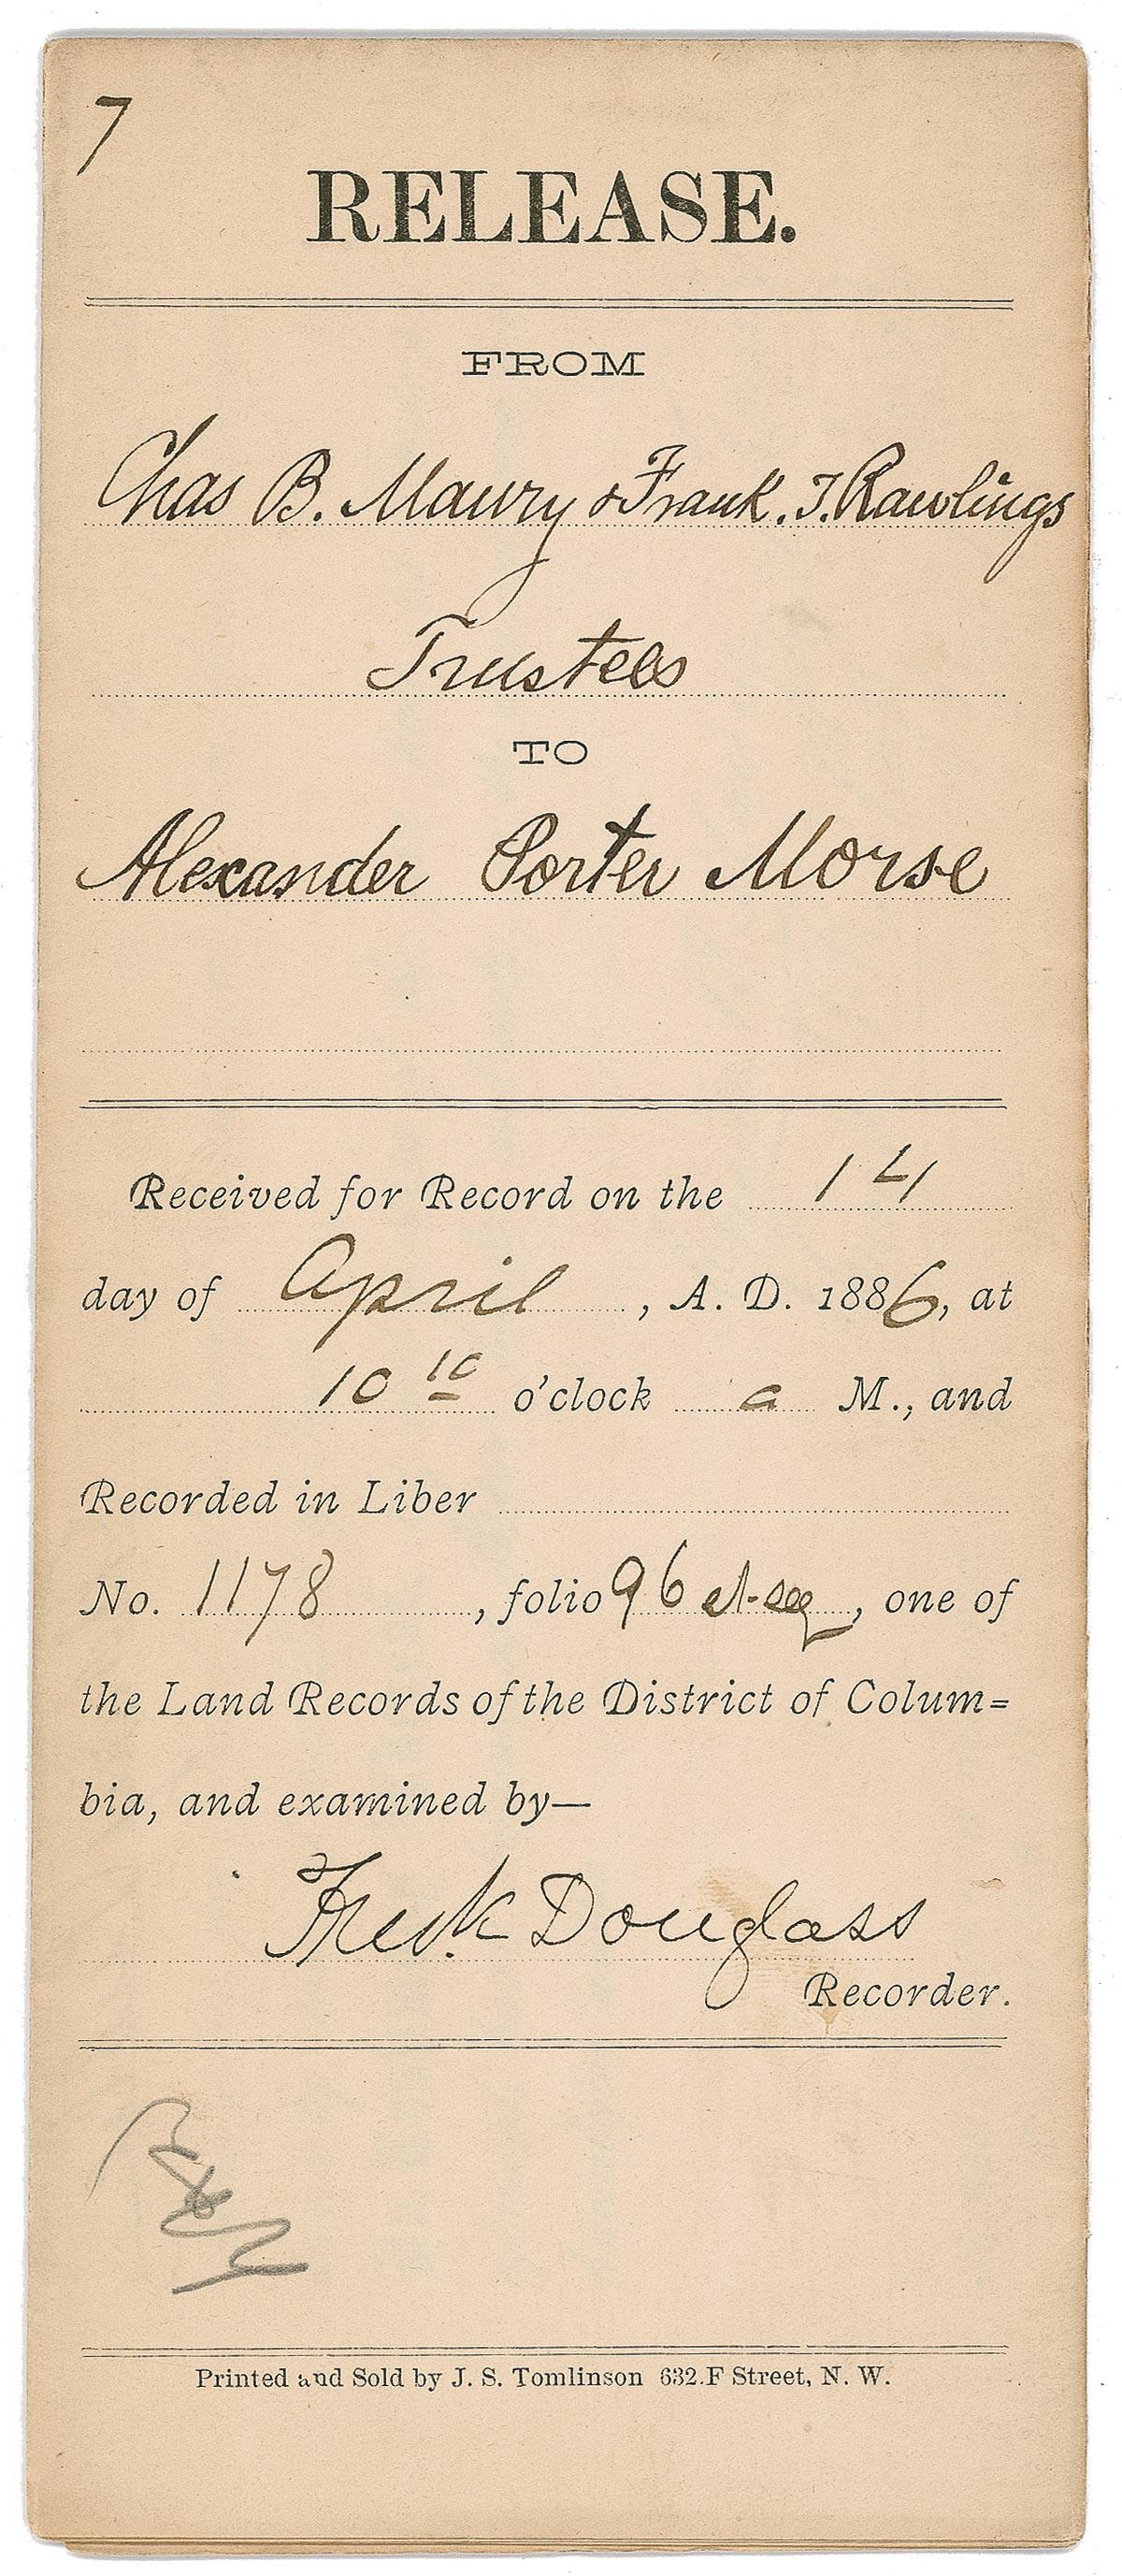 7
RELEASE.
FROM
Chas B. Maury & Frank. T. Rawlings
Trustees
TO
Alexander Porter Morse
Received for Record on the 14
day of April, A. D. 1886, at
10 10 o'clock a M., and
Recorded in Liber
No. 1178, folio 96 et seq, one of
the Land Records of the District of Colum=
bia, and examined by—
Fredk Douglass
Recorder.
Printed and Sold by J. S. Tomlinson 632.F Street, N. W.